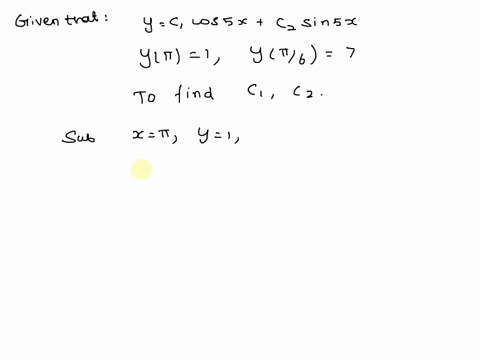 Given that: y = c₁ cos5x + c₂ sin5x
y(π) = 1, y(π/6) = 7
To find c₁, c₂.
Sub x = π, y = 1,